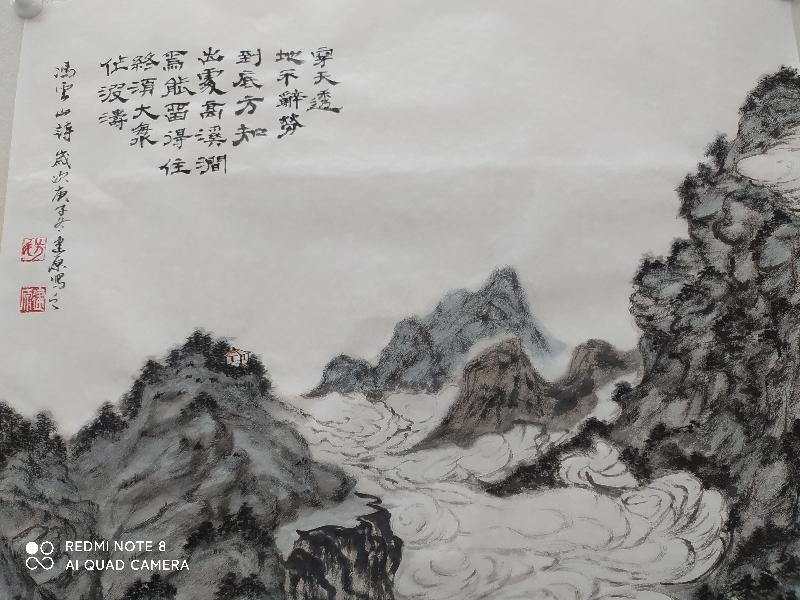 穿天透
地不辭勞
到底方知
出處高溪澗
焉能留得住
終須大海
作波濤
馮雲山詩 歲次庚子冬 建原寫之
REDMI NOTE 8
AI QUAD CAMERA